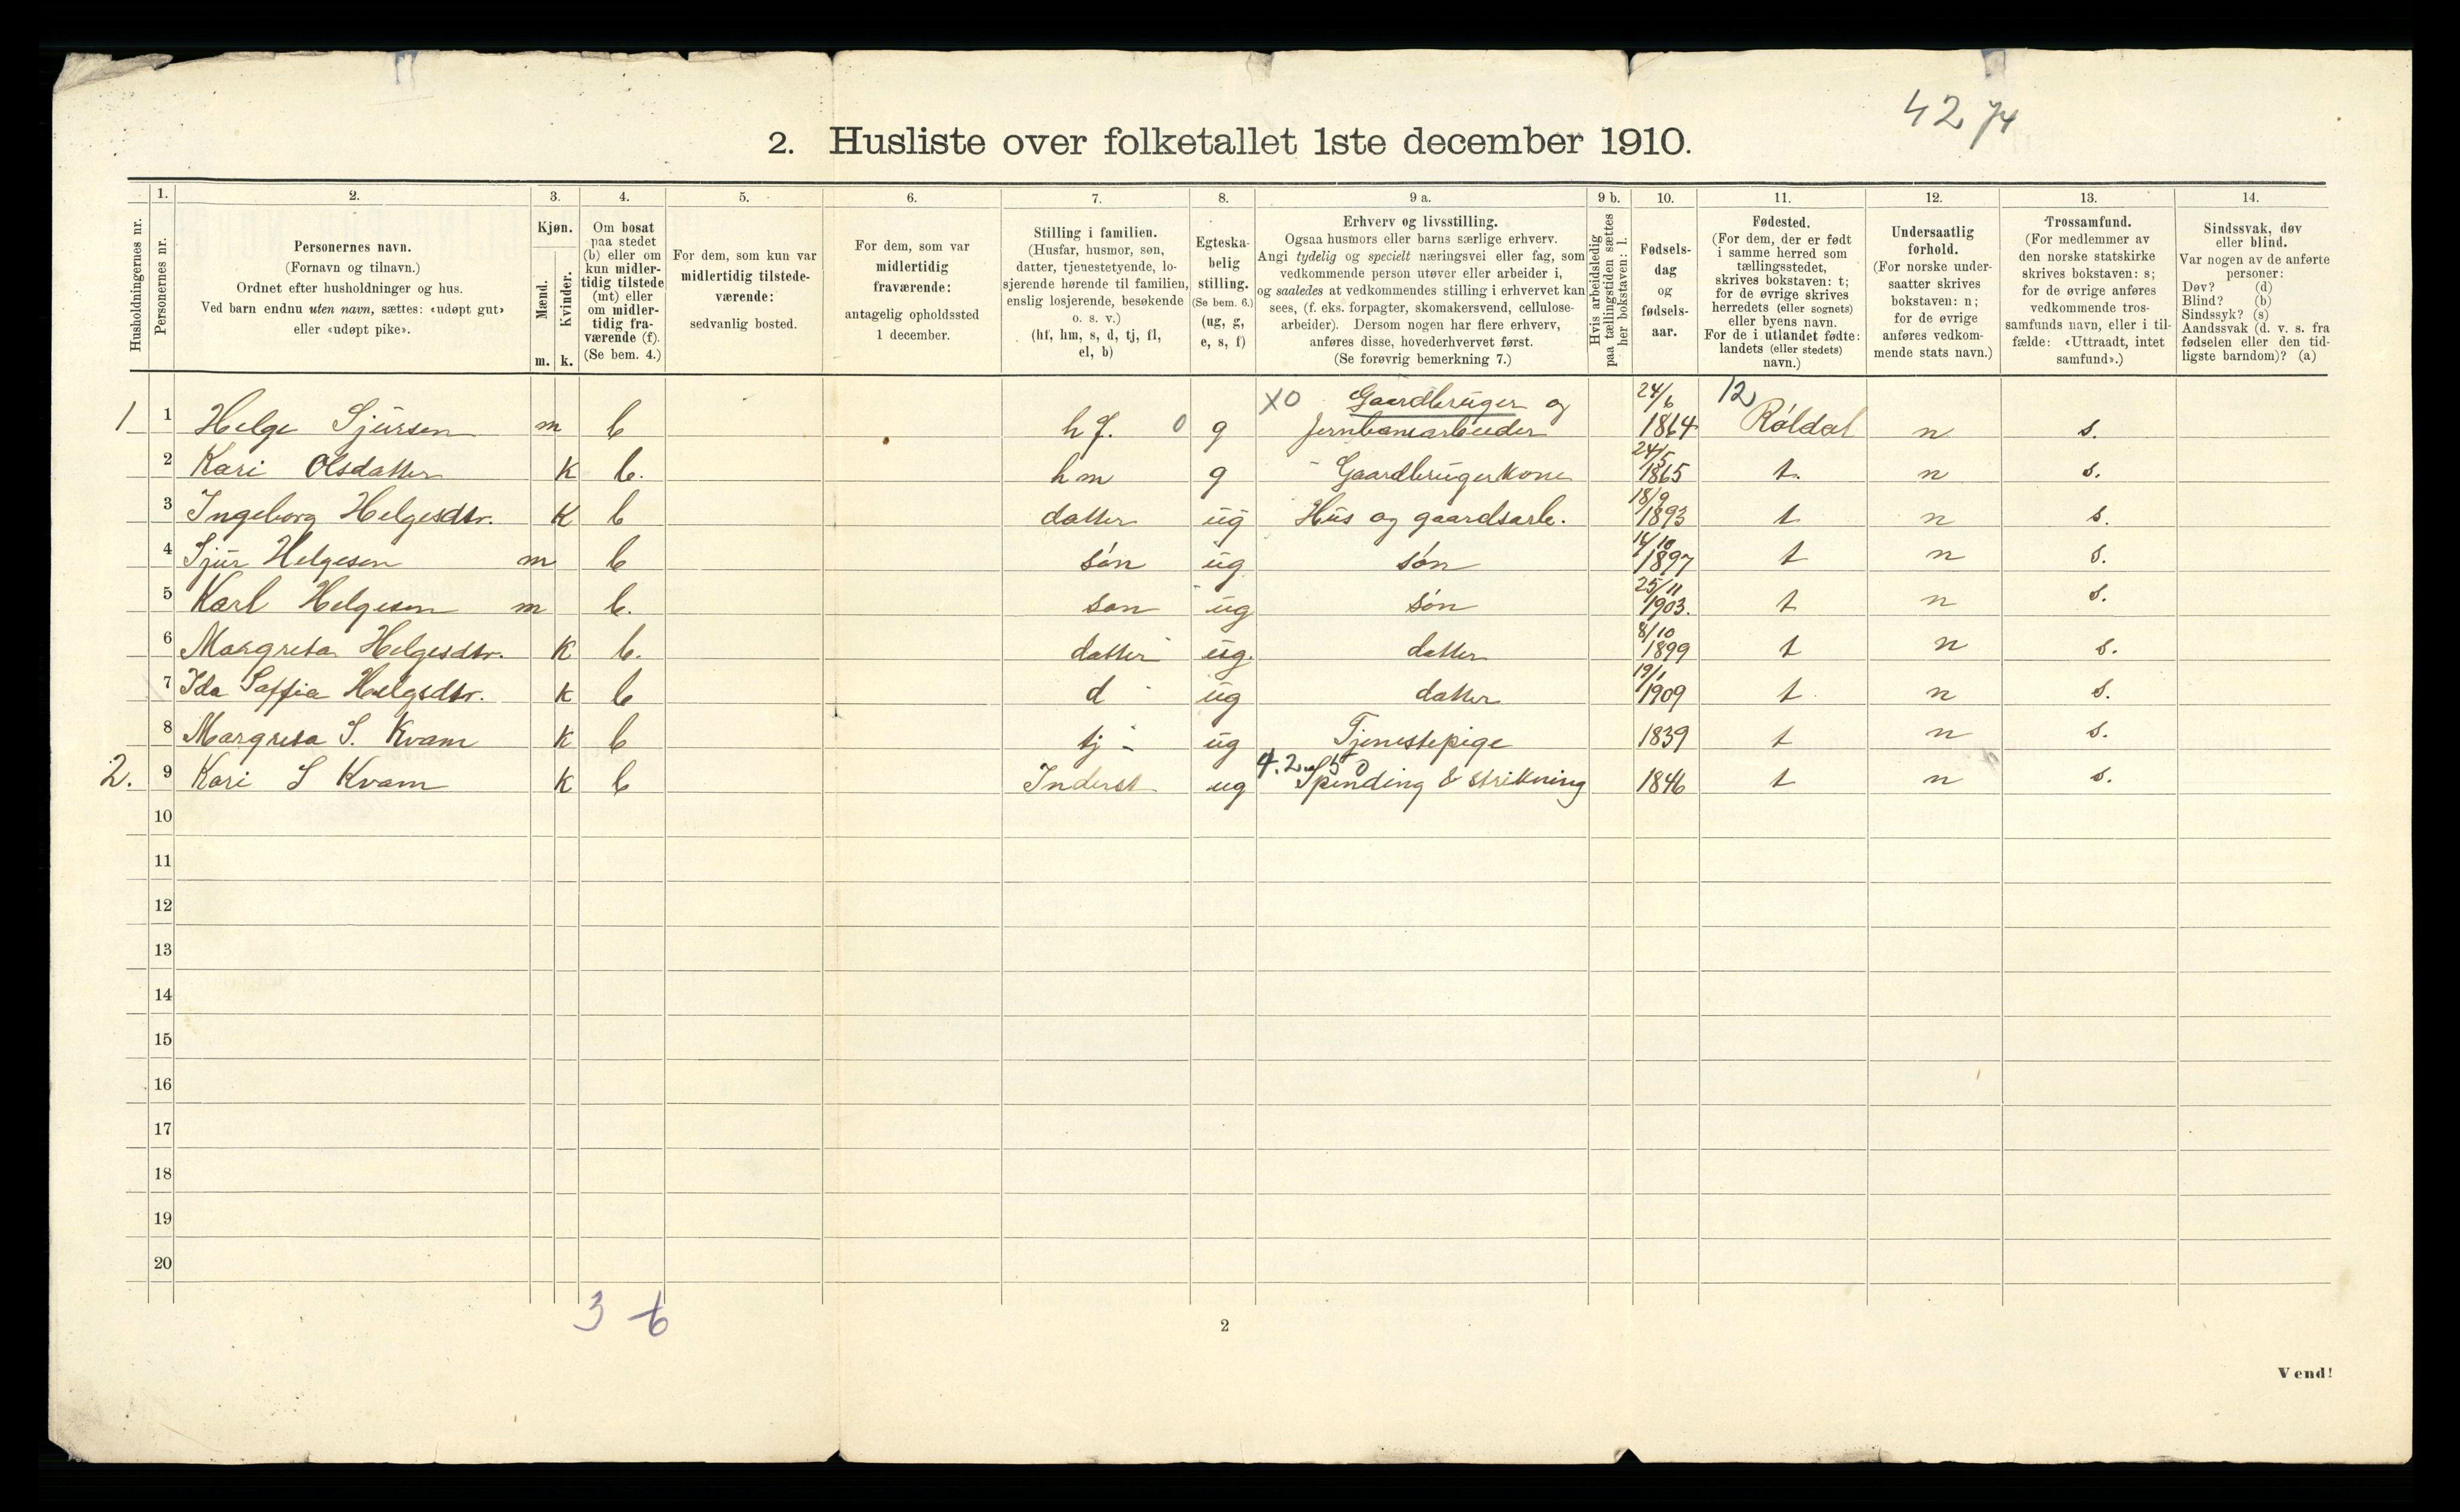 42 74
2. Husliste over folketallet 1ste december 1910.
Husholdningernes nr.
1. Personernes nr.
2. Personernes navn.
(Fornavn og tilnavn.)
Ordnet efter husholdninger og hus.
Ved barn endnu uten navn, sættes: «udøpt gut»
eller «udøpt pike».
3. Kjøn.
Mænd. Kvinder.
m. k.
4. Om bosat
paa stedet
(b) eller om
kun midler-
tidig tilstede
(mt) eller
om midler-
tidig fra-
værende (f).
(Se bem. 4.)
5. For dem, som kun var
midlertidig tilstede-
værende:
sedvanlig bosted.
6. For dem, som var
midlertidig
fraværende:
antagelig opholdssted
1 december.
7. Stilling i familien.
(Husfar, husmor, søn,
datter, tjenestetyende, lo-
sjerende hørende til familien,
enslig losjerende, besøkende
o. s. v.)
(hf, hm, s, d, tj, fl,
el, b)
8. Egteska-
belig
stilling.
(Se bem. 6.)
(ug, g,
e, s, f)
9 a. Erhverv og livsstilling.
Ogsaa husmors eller barns særlige erhverv.
Angi tydelig og specielt næringsvei eller fag, som
vedkommende person utøver eller arbeider i,
og saaledes at vedkommendes stilling i erhvervet kan
sees, (f. eks. forpagter, skomakersvend, cellulose-
arbeider). Dersom nogen har flere erhverv,
anføres disse, hovederhvervet først.
(Se forøvrig bemerkning 7.)
9 b. Hvis arbeidsledig
paa tællingstiden sættes
her bokstaven: l.
10. Fødsels-
dag
og
fødsels-
aar.
11. Fødested.
(For dem, der er født
i samme herred som
tællingsstedet,
skrives bokstaven: t;
for de øvrige skrives
herredets (eller sognets)
eller byens navn.
For de i utlandet fødte:
landets (eller stedets)
navn.)
12. Undersaatlig
forhold.
(For norske under-
saatter skrives
bokstaven: n;
for de øvrige
anføres vedkom-
mende stats navn.)
13. Trossamfund.
(For medlemmer av
den norske statskirke
skrives bokstaven: s;
for de øvrige anføres
vedkommende tros-
samfunds navn, eller i til-
fælde: «Uttraadt, intet
samfund».)
14. Sindssvak, døv
eller blind.
Var nogen av de anførte
personer:
Døv? (d)
Blind? (b)
Sindssyk? (s)
Aandssvak (d. v. s. fra
fødselen eller den tid-
ligste barndom)? (a)
XO Gaardbruger og 24/6 12
1 1 Helge Sjursen m b hf. 0 g Jernbanearbeider 1864 Røldal n s.
2 Kari Olsdatter k b. hm g - Gaardbrugerkone 24/5 1865 t. n s.
3 Ingeborg Helgesdtr. k b datter ug Hus og gaardsarb. 18/9 1893 t n s.
4 Sjur Helgesen m b søn ug søn 14/10 1897 t n s.
5 Karl Helgesen m b. søn ug søn 25/11 1903. t n s.
6 Margreta Helgesdtr. k b. datter ug. datter 8/10 1899 t n s.
7 Ida Saffia Helgsdtr. k b d ug datter 19/1 1909 t n s.
8 Margreta S. Kvam k b tj - ug Tjenestepige 1839 t n s.
2. 9 Kari S Kvam k b Inderst ug Spinding & strikning 1846 t n s.
10
11
12
13
14
15
16
17
18
19
20
3 6
2
Vend!